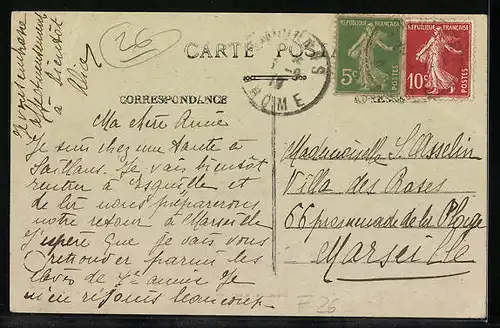 Je vous embrasse
affectueusement
à bientôt
Alice
26
CARTE POS
DRÔME
REPUBLIQUE FRANÇAISE
5c
POSTES
REPUBLIQUE FRANÇAISE
10c
POSTES
CORRESPONDANCE
Ma chère Annie
Je suis chez une tante à
Saillans. Je vais bientôt
rentrer à Esquille et
de là nous préparerons
notre retour à Marseille
J'espère que je vais vous
retrouver parmi les
élèves de 4e année Je
m'en réjouis beaucoup
Mademoiselle S. Asselin
Villa des Roses
66 promenade de la Plage
Marseille
F 26